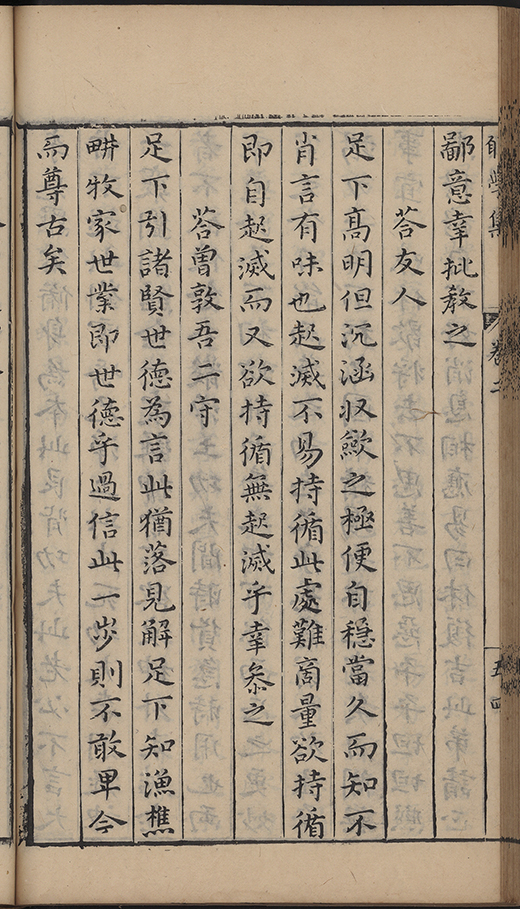 學集 卷二 五 四
鄙意幸批教之
荅友人
足下高明但沉涵収歛之極便自穩當久而知不
肖言有味也起滅不易持循此處難商量欲持循
即自起滅而又欲持循無起滅乎幸叅之
荅曾敦吾二守
足下引諸賢世德為言此猶落見解足下知漁樵
畊牧家世業即世德乎過信此一步則不敢卑今
而尊古矣